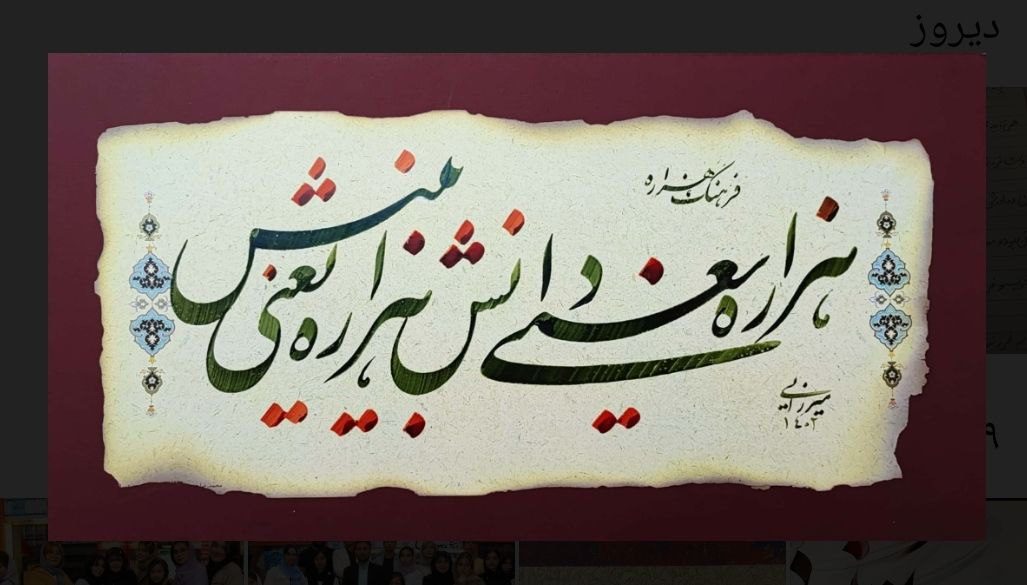 دیروز
فرهنگ هزاره
هزاره یعنی دانش هزاره یعنی منش
میرزایی
۱۴۰۲
۹